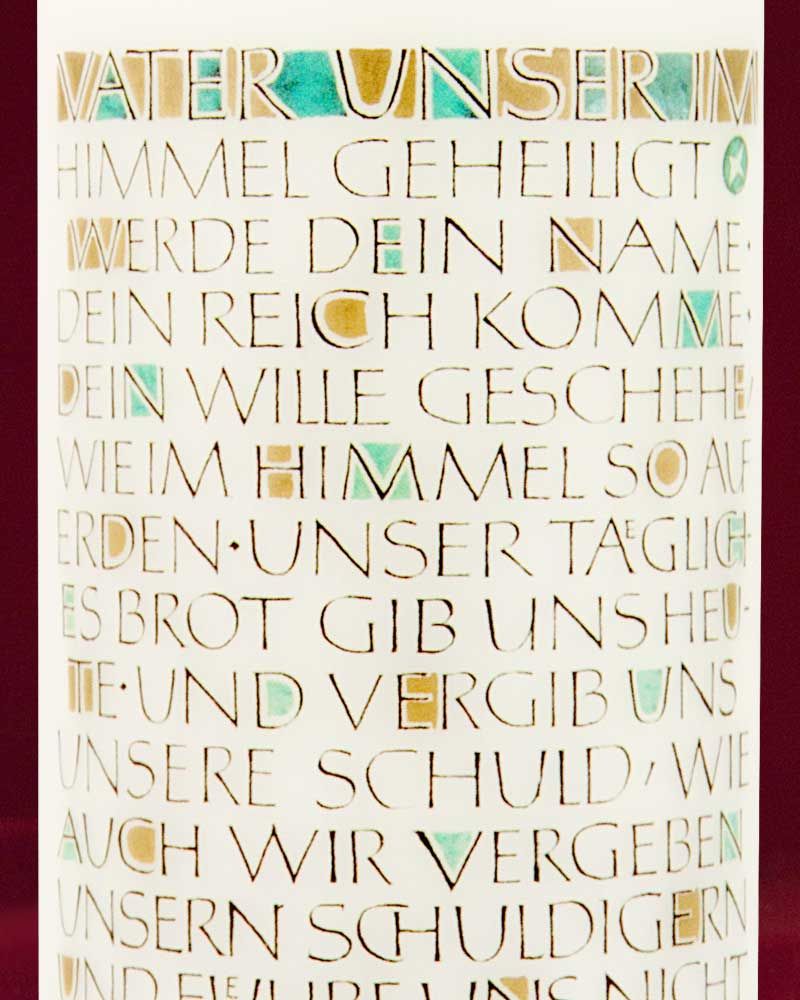 VATER UNSER IM
HIMMEL GEHEILIGT
WERDE DEIN NAME·
DEIN REICH KOMME·
DEIN WILLE GESCHEHE,
WIE IM HIMMEL SO AUF
ERDEN·UNSER TAEGLICH
ES BROT GIB UNS HEU-
TE·UND VERGIB UNS
UNSERE SCHULD, WIE
AUCH WIR VERGEBEN
UNSERN SCHULDIGERN
UND FUEHRE UNS NICHT